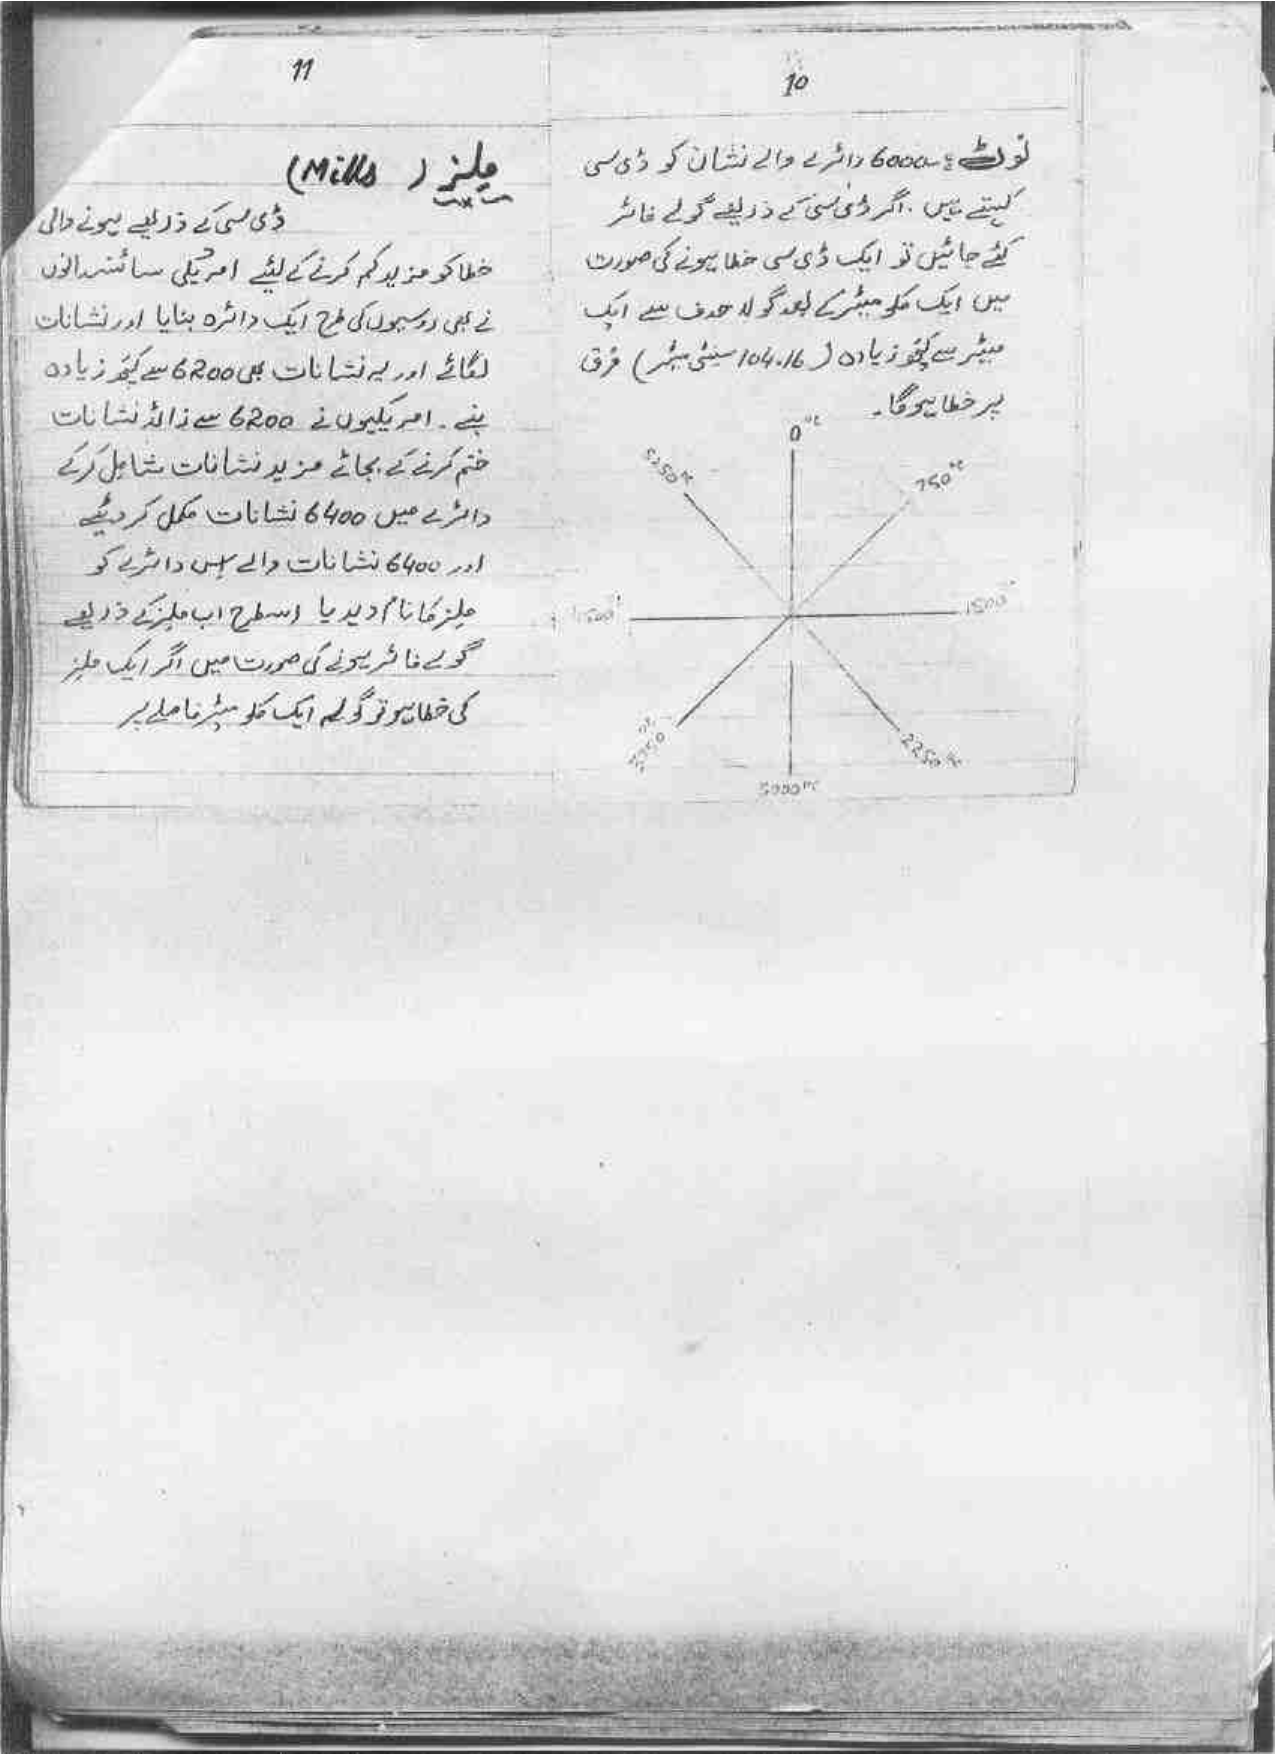 10
نوٹ :۔ 6000 دائرے والے نشان کو ڈی سی
کہتے ہیں ۔ اگر ڈی سی کے ذریعے گولے فائر
کئے جائیں تو ایک ڈی سی خطا ہونے کی صورت
میں ایک کلو میٹر کے بعد گولا ھدف سے ایک
میٹر سے کچھ زیادہ ( 104.16 سینٹی میٹر ) فرق
پر خطا ہوگا۔
0
750
1500
2250
11
ملز ( Mills )
ڈی سی کے ذریعے ہونے والی
خطا کو مزید کم کرنے کے لئیے امریکی سائنسدانوں
نے بھی روسیوں کی طرح ایک دائرہ بنایا اور نشانات
لگائے اور یہ نشانات بھی 6200 سے کچھ زیادہ
بنے ۔ امریکیوں نے 6200 سے زائد نشانات
ختم کرنے کے بجائے مزید نشانات شامل کرکے
دائرے میں 6400 نشانات مکمل کر دیئے
اور 6400 نشانات والے اس دائرے کو
ملز کا نام دیدیا اسطرح اب ملز کے ذریعے
گولے فائر ہونے کی صورت میں اگر ایک ملز
کی خطا ہو تو گولہ ایک کلو میٹر فاصلے پر